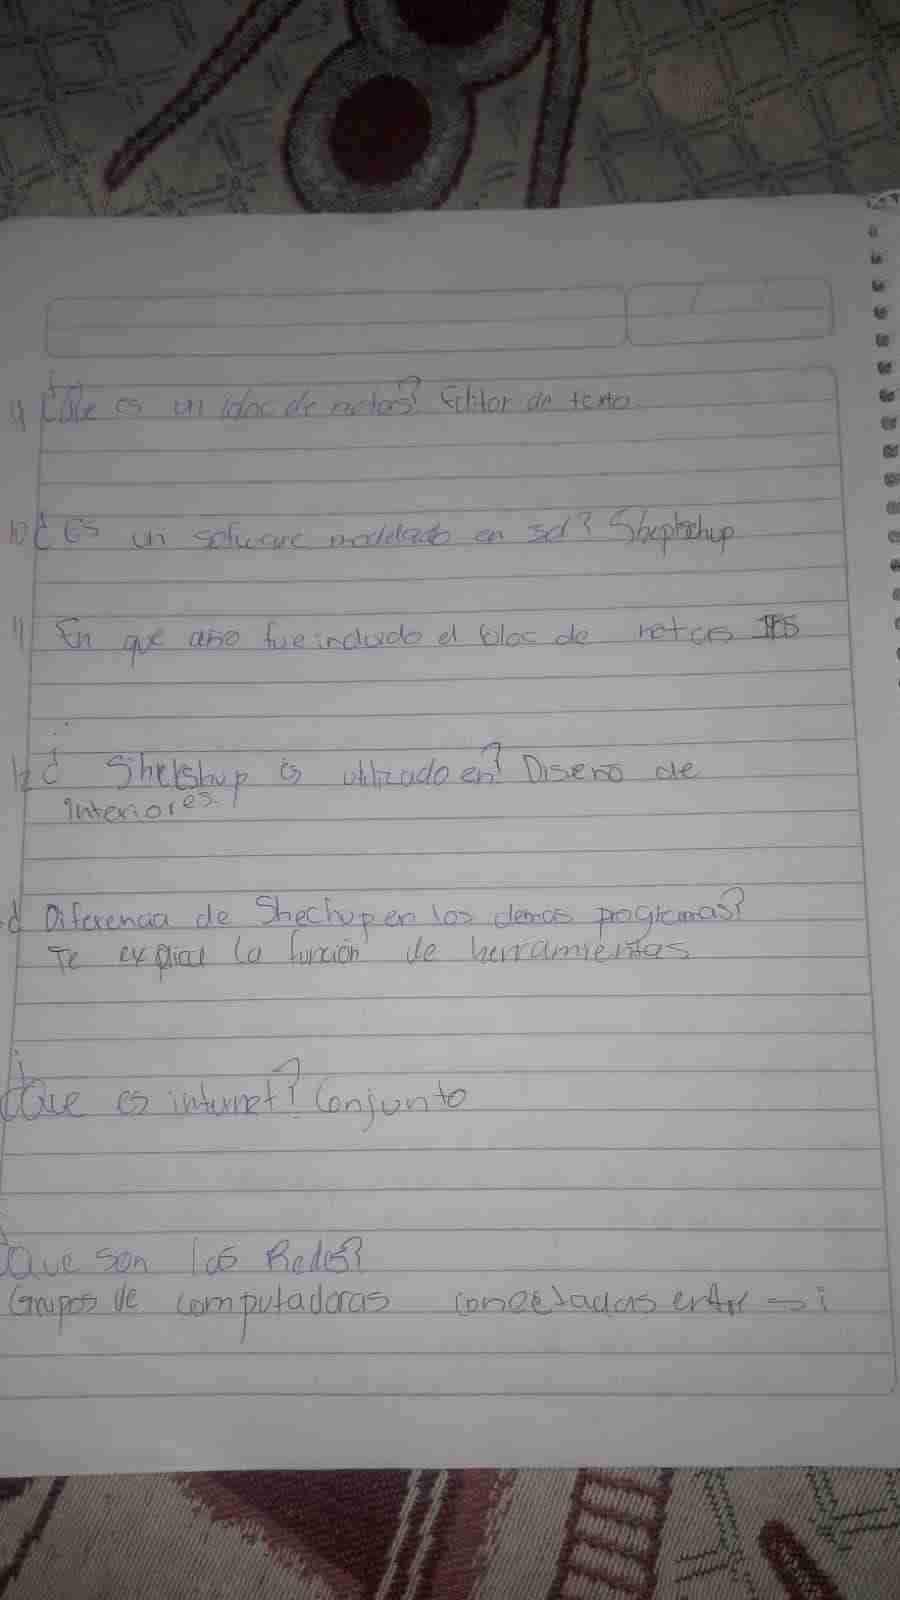 9 ¿Que es un bloc de notas? Editor de texto
10 ¿ Es un sofware modelado en 3d? Sheptchup
11 En que año fue incluido el bloc de notas
12 ¿ Shetshup is utilizado en? Diseño de
interiores.
Diferencia de Shechup en los demas programas?
Te explica la función de herramientas
¿Que es internet? Conjunto
Que son las Redes?
Grupos de computadoras conectadas entre si